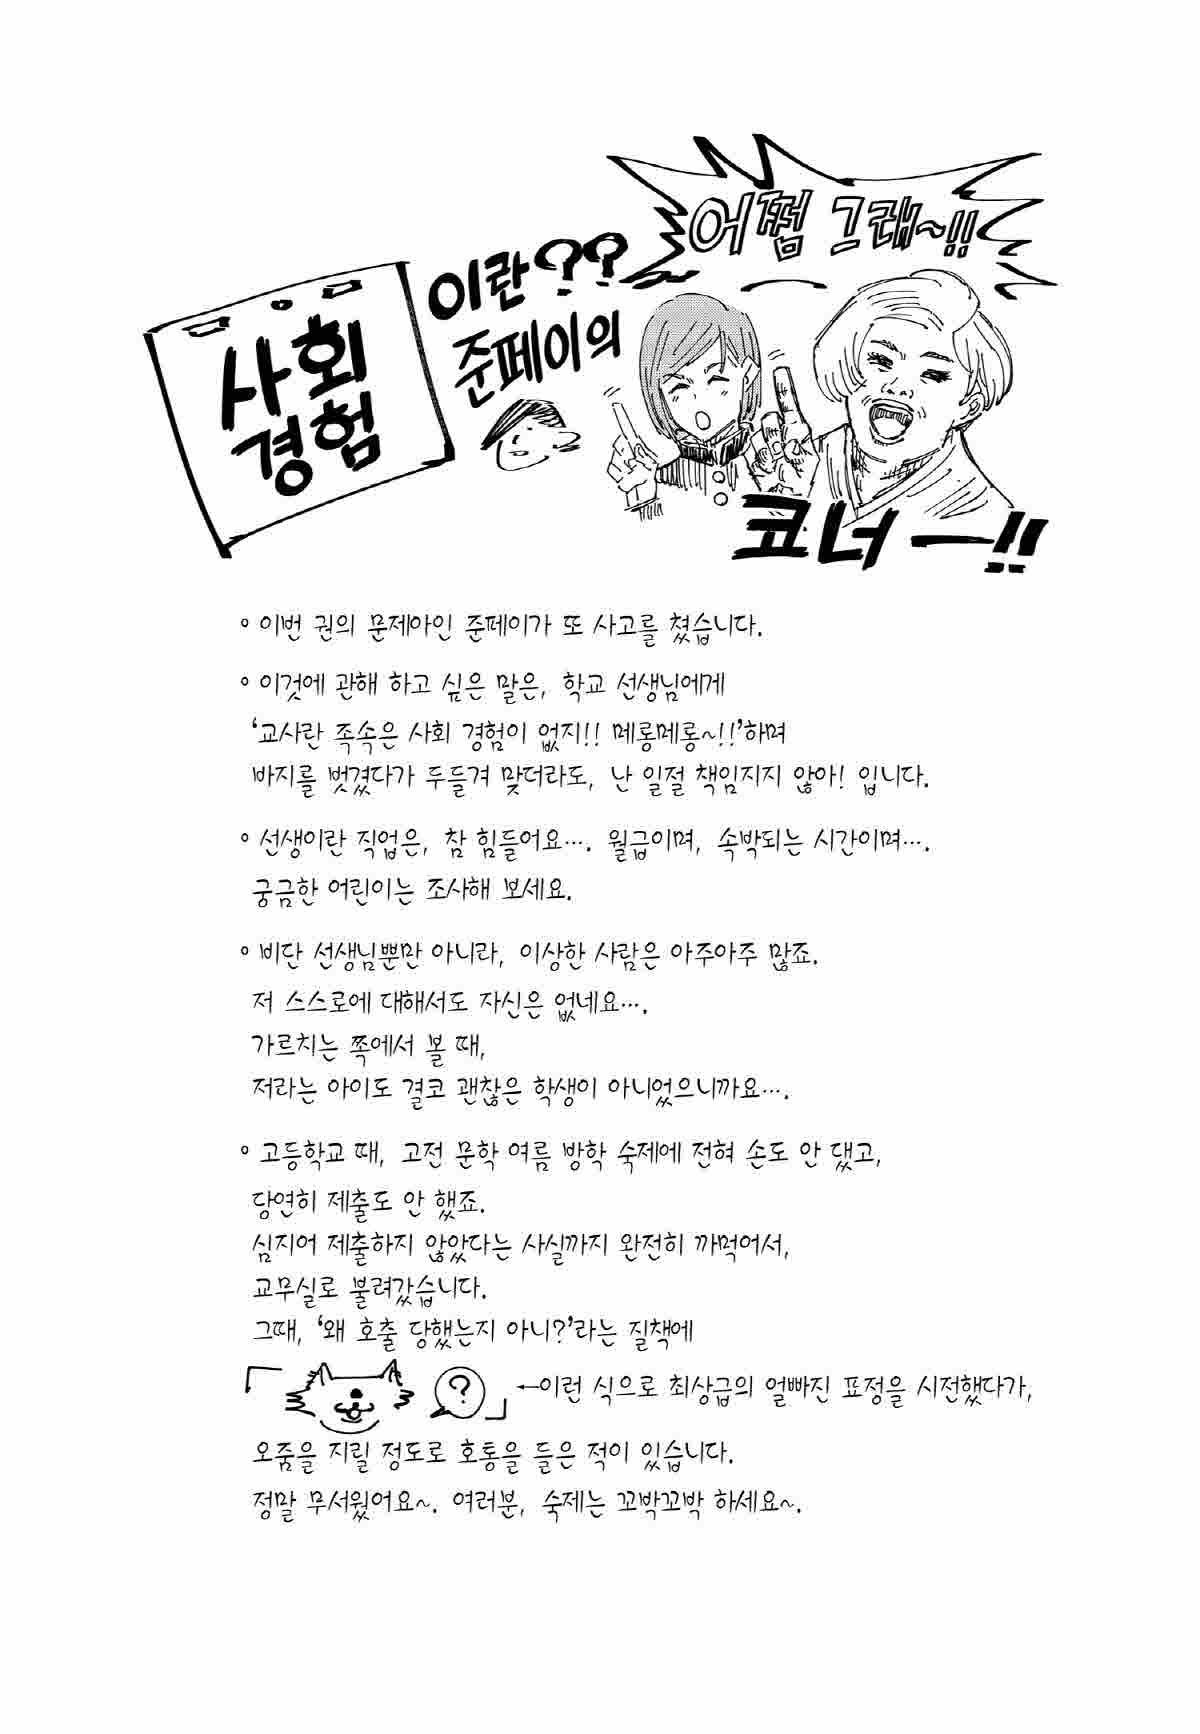 사회
경험
이란??
준페이의
어쩜 그래~!!
코너ー!!
◦ 이번 권의 문제아인 준페이가 또 사고를 쳤습니다.
◦ 이것에 관해 하고 싶은 말은, 학교 선생님에게
'교사란 족속은 사회 경험이 없지!! 메롱메롱~!!'하며
바지를 벗겼다가 두들겨 맞더라도, 난 일절 책임지지 않아! 입니다.
◦ 선생이란 직업은, 참 힘들어요…. 월급이며, 속박되는 시간이며….
궁금한 어린이는 조사해 보세요.
◦ 비단 선생님뿐만 아니라, 이상한 사람은 아주아주 많죠.
저 스스로에 대해서도 자신은 없네요….
가르치는 쪽에서 볼 때,
저라는 아이도 결코 괜찮은 학생이 아니었으니까요….
◦ 고등학교 때, 고전 문학 여름 방학 숙제에 전혀 손도 안 댔고,
당연히 제출도 안 했죠.
심지어 제출하지 않았다는 사실까지 완전히 까먹어서,
교무실로 불려갔습니다.
그때, '왜 호출 당했는지 아니?'라는 질책에
「 ? 」 ←이런 식으로 최상급의 얼빠진 표정을 시전했다가,
오줌을 지릴 정도로 호통을 들은 적이 있습니다.
정말 무서웠어요~. 여러분, 숙제는 꼬박꼬박 하세요~.